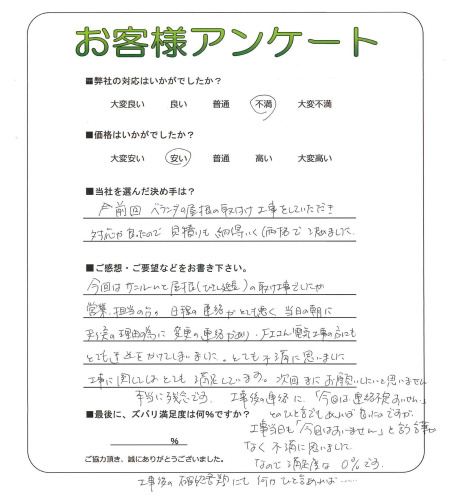 お客様アンケート
■弊社の対応はいかがでしたか？
大変良い 良い 普通 不満 大変不満
■価格はいかがでしたか？
大変安い 安い 普通 高い 大変高い
■当社を選んだ決め手は？
前回 ベランダの屋根の取付け工事をしていただき
対応が良かったので 見積りも納得いく価格で決めました
■ご感想・ご要望などをお書き下さい。
今回はサンルームと屋根の取付け工事でしたが
営業担当の方の日程の連絡がとても悪く 当日の朝に
天候の理由の為に 変更の連絡があり、エアコン電気工事の方にも
とても迷惑をかけてしまいました。とても不満に思いました
工事に関してはとても満足しています。次回またお願いしたいと思いません
本当に残念です。工事後の連絡に、「今回は連絡が すいません」
とのひと言でもあれば 良いのですが、
■最後に、ズバリ満足度は何％ですか？
工事当日も「今日はすいません」と言う言葉
なく 不満に思いました
なので満足度は 0％です。
％
ご協力頂き、誠にありがとうございました。
工事後の 確認書類にも 何かひと言あれば……